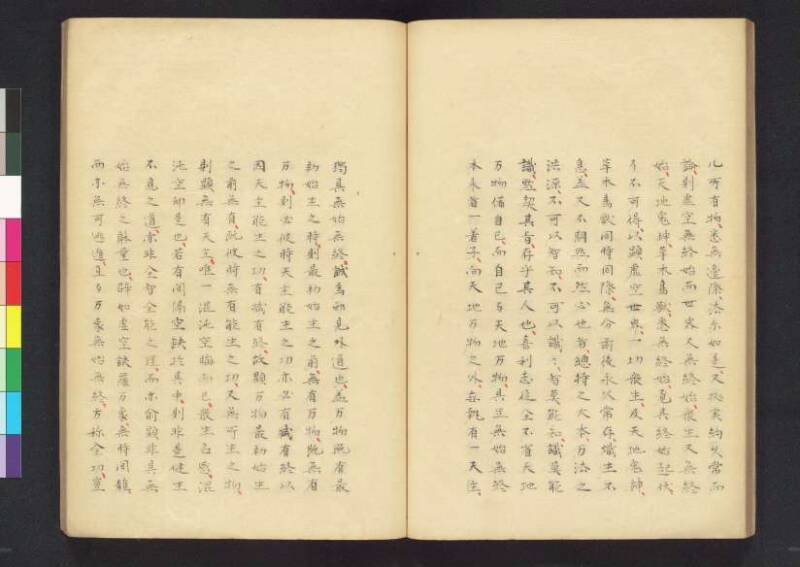 凡所有物、悉無邊際、法亦如是、又極實約久常而
論、則虛空無終始、而世界又無終始、衆生又無終
始、天地鬼神草木鳥獸、悉無終始、覓其終始起伏、
了不可得、以顯虛空世界、一切衆生、及天地鬼神、
草木鳥獸同時同際、無分前後、永以常存、熾生不
息、並又不期然而然、也皆總持之大本、万法之
洪源、不可以智知、不可以識識、智莫能知、識莫能
識、默契其旨、存乎其人也、喜利志徒全不省天地
万物備自己、而自己与天地万物、具至無始無終
本來者一著子、向天地万物之外、妄執有一天主、
獨具無始無終、誠爲邪見外道也、盖万物既有最
初始生之時、則最初始生之前、無有万物、既無有
万物、則必彼時天主能生之功亦必有缺有終、以
因天主能生之功、有缺有終、故顯万物最初始生
之前無有、既彼時無有能生之功、又無所生之物、
則顯無有天主、唯一混沌空晦而已、衆生名惑、混
沌空却是也、若有間隔空缺於其中、則非是健生
不息之道、亦非全智全能之理、而亦喻顯非具無
始無終之躰量也、辟如虛空該羅万象、無時間隔、
而亦無可逃遁、且与万象無始無終、方称全功、豈